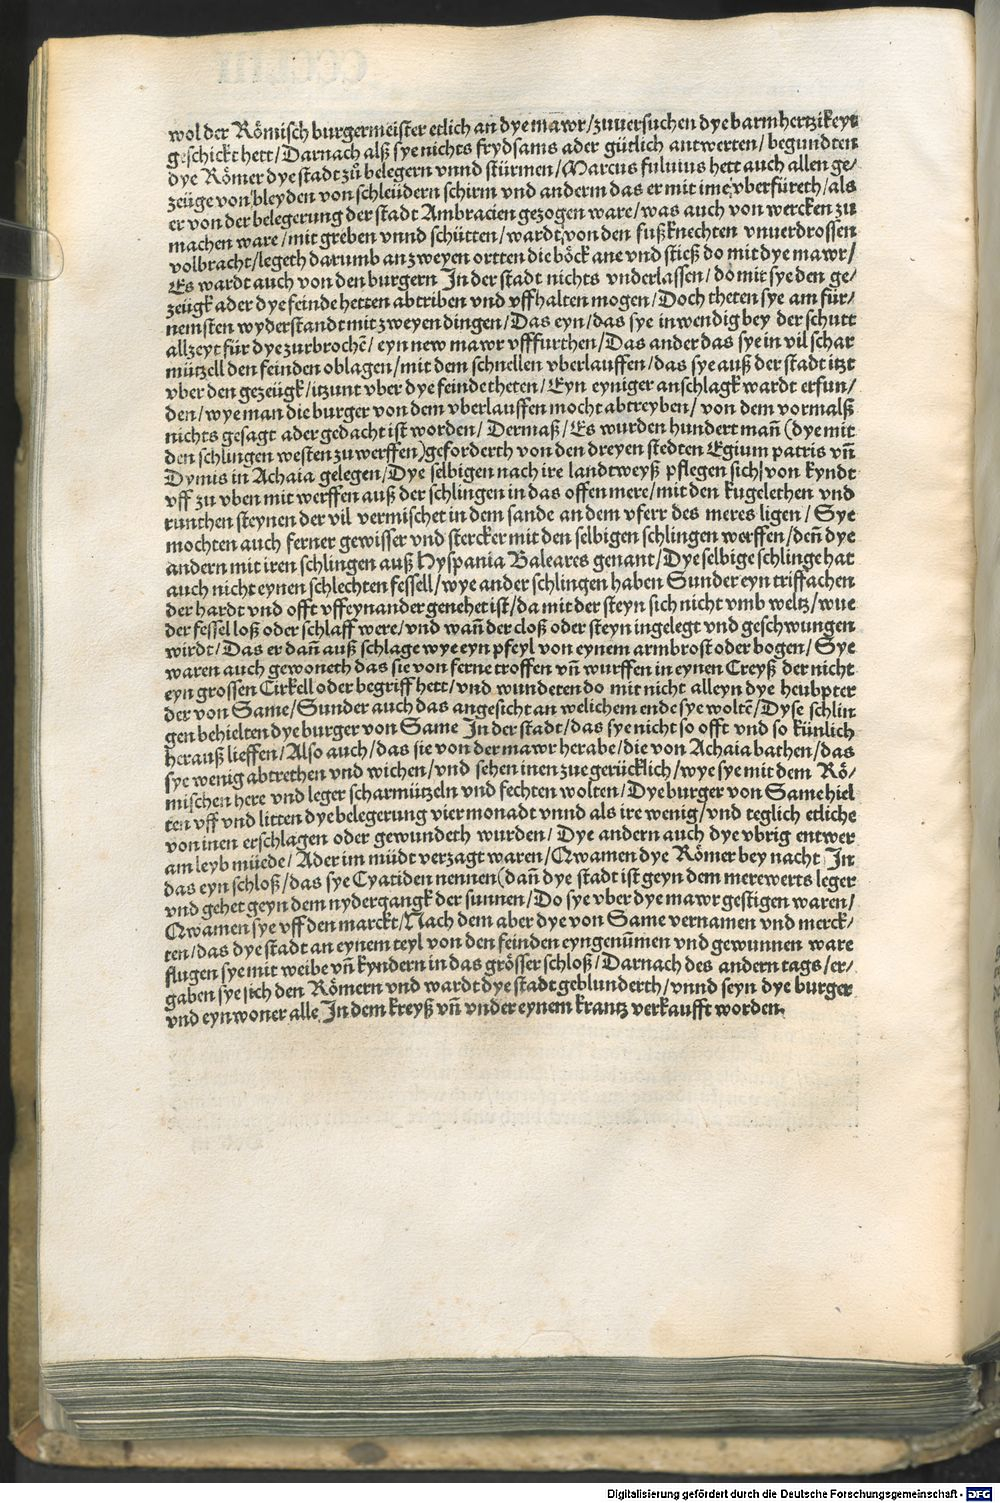 wol der Römisch burgermeister etlich an dye mawr/zuuersuchen dye barmhertzikeyt
geschickt hett/Darnach alß sye nichts frydsams ader gütlich antwerten/begundten
dye Römer dye stadt zů belegern vnnd stürmen/Marcus fuluius hett auch allen ge/
zeüge von bleyden von schleüdern schirm vnd anderm das er mit ime vberfüreth/als
er von der belegerung der stadt Ambracien gezogen ware/was auch von wercken zu
machen ware/mit greben vnnd schütten/wardt von den fußknechten vnuerdrossen
volbracht/legeth darumb an zweyen ortten die böck ane vnd stieß do mit dye mawr/
Es wardt auch von den burgern In der stadt nichts vnderlassen/do mit sye den ge/
zeügk ader dye feinde hetten abtriben vnd vffhalten mogen/Doch theten sye am für/
nemsten wyderstandt mit zweyen dingen/Das eyn/das sye inwendig bey der schutt
allzeyt für dye zurbrochē/eyn new mawr vfffurthen/Das ander das sye in vil schar
mützell den feinden oblagen/mit dem schnellen vberlauffen/das sye auß der stadt itzt
vber den gezeügk/itzunt vber dye feinde theten/Eyn eyniger anschlagk wardt erfun/
den/wye man die burger von dem vberlauffen mocht abtreyben/von dem vormalß
nichts gesagt ader gedacht ist worden/Dermaß/Es wurden hundert mañ (dye mit
den schlingen westen zu werffen)geforderth von den dreyen stedten Egium patris vñ
Dymis in Achaia gelegen/Dye selbigen nach ire landtweyß pflegen sich von kyndt
vff zu vben mit werffen auß der schlingen in das offen mere/mit den kugelethen vnd
runthen steynen der vil vermischet in dem sande an dem vferr des meres ligen/Sye
mochten auch ferner gewisser vnd stercker mit den selbigen schlingen werffen/deñ dye
andern mit iren schlingen auß Hyspania Baleares genant/Dye selbige schlinge hat
auch nicht eynen schlechten fessell/wye ander schlingen haben Sunder eyn triffachen
der hardt vnd offt vffeynander genehet ist/da mit der steyn sich nicht vmb weltz/wue
der fessel loß oder schlaff were/vnd wañ der cloß oder steyn ingelegt vnd geschwungen
wirdt/Das er dañ auß schlage wye eyn pfeyl von eynem armbrost oder bogen/Sye
waren auch gewoneth das sie von ferne troffen vñ wurffen in eynen Creyß der nicht
eyn grossen Cirkell oder begriff hett/vnd wunderen do mit nicht alleyn dye heubpter
der von Same/Sunder auch das angesicht an welichem ende sye woltē/Dyse schlin
gen behielten dye burger von Same In der stadt/das sye nicht so offt vnd so künlich
herauß lieffen/Also auch/das sie von der mawr herabe/die von Achaia bathen/das
sye wenig abtrethen vnd wichen/vnd sehen inen zue gerücklich/wye sye mit dem Rö/
mischen here vnd leger scharmützeln vnd fechten wolten/Dye burger von Same hiel
ten vff vnd litten dye belegerung vier monadt vnnd als ire wenig/vnd teglich etliche
von inen erschlagen oder gewundeth wurden/Dye andern auch dye vbrig entwer
am leyb müede/Ader im müdt verzagt waren/Qwamen dye Römer bey nacht In
das eyn schloß/das sye Cyatiden nennen(dañ dye stadt ist geyn dem merewerts leger
vnd gehet geyn dem nydergangk der sunnen/Do sye vber dye mawr gestigen waren/
Qwamen sye vff den marckt/Nach dem aber dye von Same vernamen vnd merck/
ten/das dye stadt an eynem teyl von den feinden eyngenūmen vnd gewunnen ware
flugen sye mit weibe vñ kyndern in das grösser schloß/Darnach des andern tags/er/
gaben sye sich den Römern vnd wardt dye stadt geblunderth/vnnd seyn dye burger
vnd eynwoner alle In dem kreyß vñ vnder eynem krantz verkaufft worden.
Digitalisierung gefördert durch die Deutsche Forschungsgemeinschaft - DFG